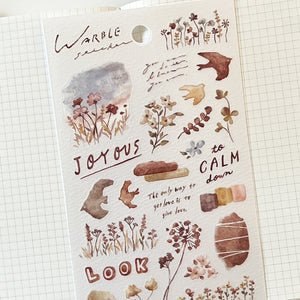 WARBLE
sticker
JOYOUS
to
CALM
down
The only way to
get love is to
give love.
LOOK